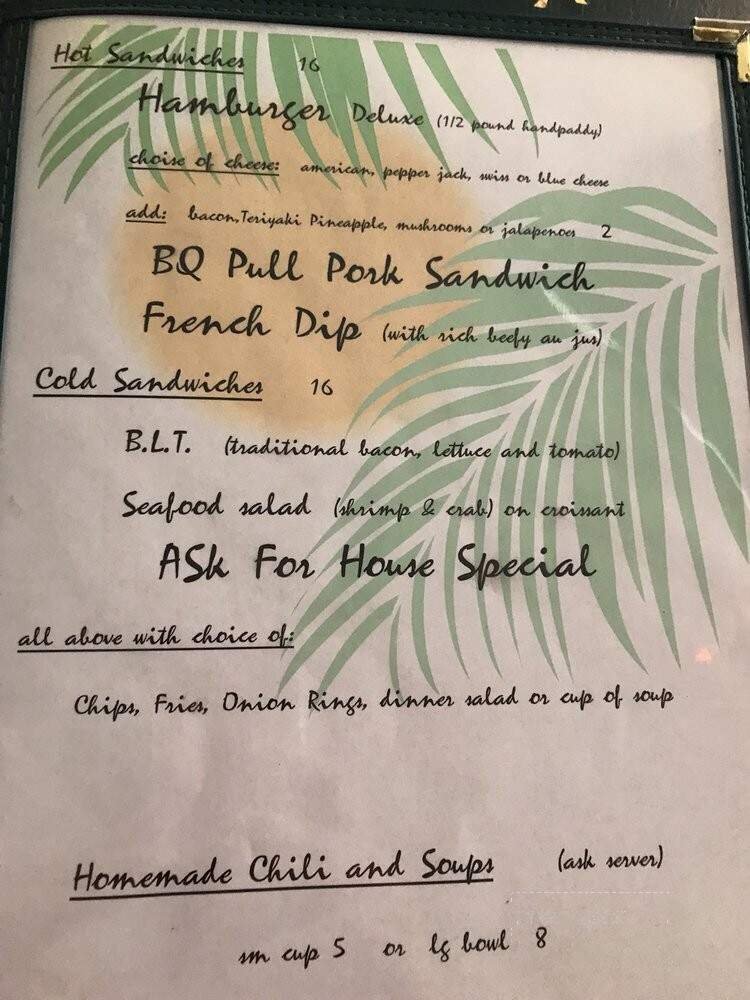 Hot Sandwiches 16
Hamburger Deluxe (1/2 pound handpaddy)
choise of cheese: american, pepper jack, swiss or blue cheese
add: bacon, Teriyaki Pineapple, mushrooms or jalapenoes 2
BQ Pull Pork Sandwich
French Dip (with rich beefy au jus)
Cold Sandwiches 16
B.L.T. (traditional bacon, lettuce and tomato)
Seafood salad (shrimp & crab) on croissant
ASk For House Special
all above with choice of:
Chips, Fries, Onion Rings, dinner salad or cup of soup
Homemade Chili and Soups (ask server)
sm cup 5 or lg bowl 8